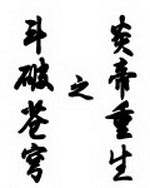 斗破苍穹
之
炎帝重生